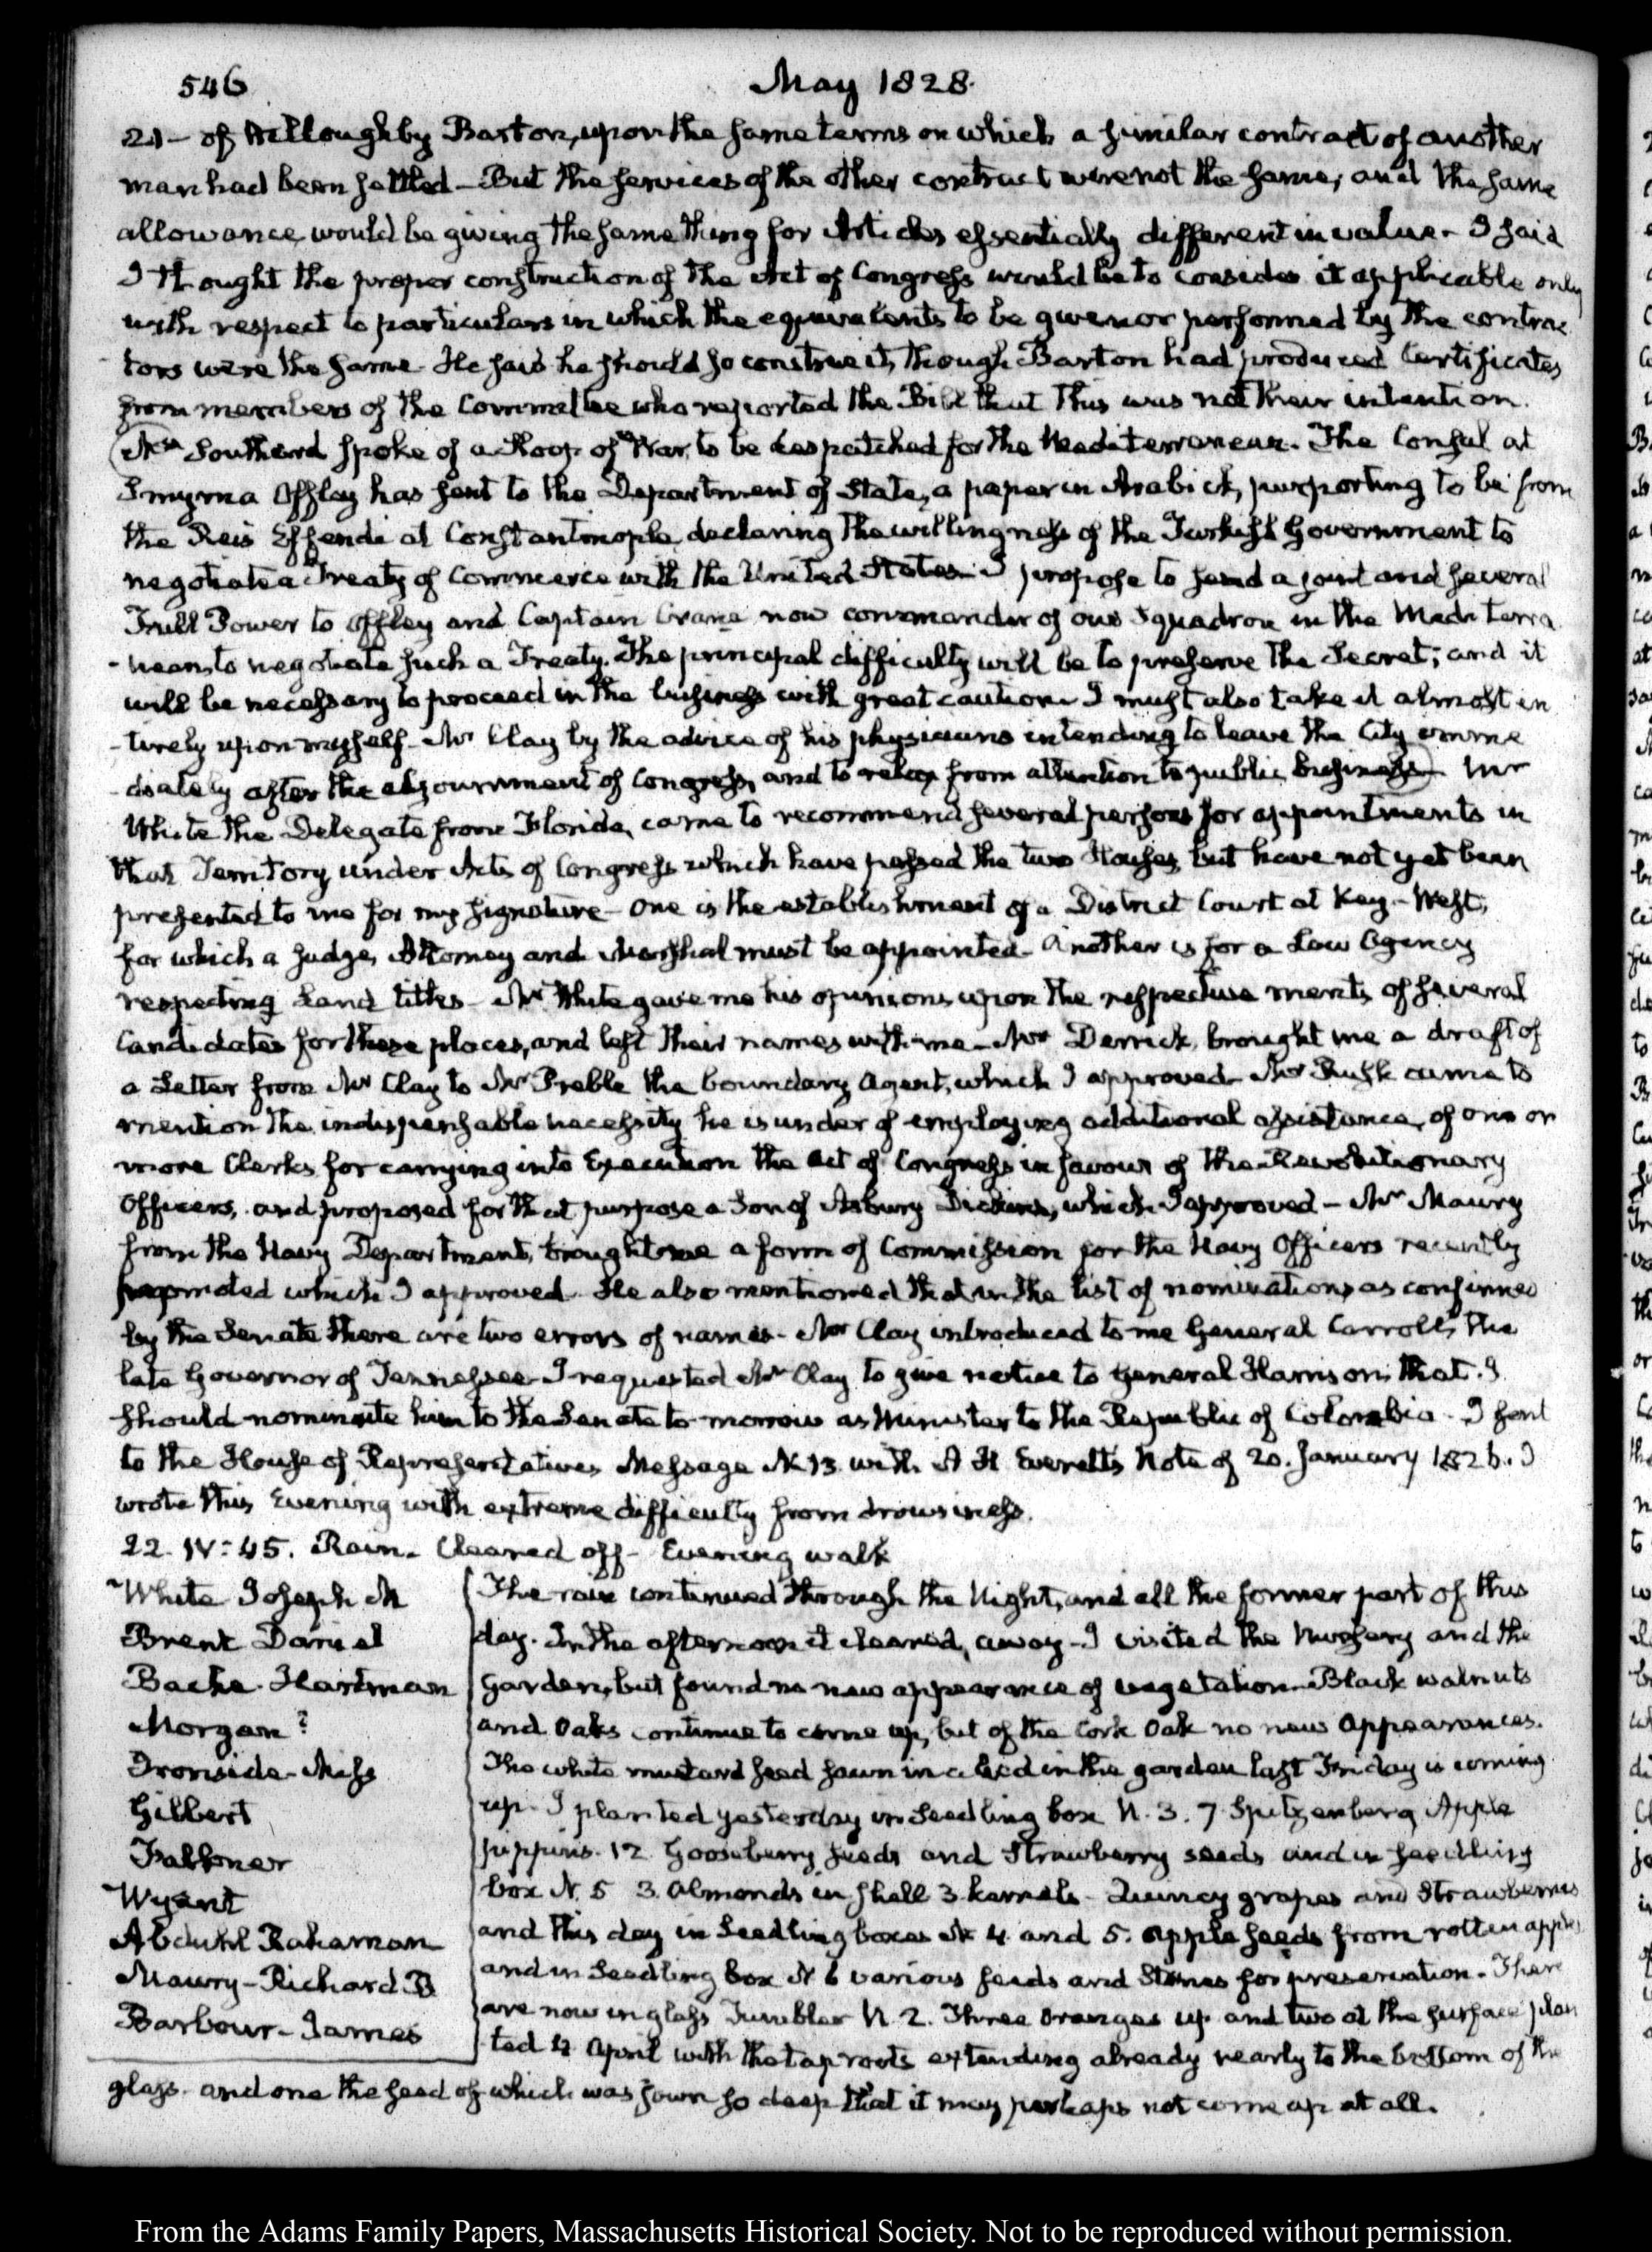 546
May 1828.
21 - of Willoughby Barton, upon the same terms on which a similar contract of another
man had been settled - But the services of the other contract were not the same, and the same
allowance, would be giving the same thing for Articles essentially different in value - I said
I thought the proper construction of the Act of Congress would be to consider it applicable only
with respect to particulars in which the equivalents to be given or performed by the contrac
tors were the same. He said he should so construe it, though Barton had produced Certificates
from members of the Committee who reported the Bill that this was not their intention.
Mr Southard spoke of a Sloop of War, to be despatched for the Mediterranean. The Consul at
Smyrna Offley has sent to the Department of State, a paper in Arabick, purporting to be from
the Reis Effendi at Constantinople, declaring the willingness of the Turkish Government to
negotiate a Treaty of Commerce with the United States - I propose to send a joint and several
Full Power to Offley and Captain Crane now commander of our Squadron in the Mediterra
-nean, to negotiate such a Treaty. The principal difficulty will be to preserve the Secret; and it
will be necessary to proceed in the business with great caution. I must also take it almost en
-tirely upon myself - Mr Clay by the advice of his physicians intending to leave the City imme
-diately after the adjournment of Congress, and to relax from attention to public business) Mr
White the Delegate from Florida, came to recommend several persons for appointments in
that Territory under Acts of Congress which have passed the two Houses, but have not yet been
presented to me for my signature - One is the establishment of a District Court at Key-West,
for which a Judge, Attorney and Marshal must be appointed - Another is for a Law Agency
respecting Land titles - Mr White gave me his opinions upon the respective merits of several
Candidates for these places, and left their names with me - Mr Derrick, brought me a draft of
a Letter from Mr Clay to Mr Preble the boundary Agent, which I approved - Mr Rush came to
mention the indispensable necessity he is under of employing additional assistance, of one or
more Clerks for carrying into Execution the Act of Congress in favour of the Revolutionary
Officers, and proposed for that purpose a Son of Asbury Dickins, which I approved - Mr Maury
from the Navy Department, brought me a form of Commission for the Navy Officers recently
promoted which I approved. He also mentioned that in the list of nominations as confirmed
by the Senate there are two errors of names - Mr Clay introduced to me General Carroll, the
late Governor of Tennessee - I requested Mr Clay to give notice to General Harrison, that I
should nominate him to the Senate to-morrow as Minister to the Republic of Colombia - I sent
to the House of Representatives Message N 13. with A H Everett's Note of 20. January 1826. I
wrote this Evening with extreme difficulty from drowsiness.
22. IV: 45. Rain. Cleared off - Evening walk
White Joseph M
Brent Daniel
Bache. Hartman
Morgan ?
Ironside - Miss
Gilbert
Falkner
Wyant
Abduhl Rahaman
Maury - Richard B
Barbour - James
The rain continued through the Night, and all the former part of this
day. In the afternoon it cleared away - I visited the Nursery and the
Garden, but found no new appearance of vegetation. Black walnuts
and Oaks continue to come up, but of the Cork Oak no new appearances.
The white mustard seed sown in a bed in the garden last Friday is coming
up - I planted yesterday in Seedling box N. 3. 7 Spitzenberg Apple
pippins. 12 Gooseberry seeds and Strawberry seeds and in seedling
box N. 5 3. Almonds in shell 3 kernels - Quincy grapes and Strawberries
and this day in Seedling boxes N 4 and 5. Apple seeds from rotten apples
and in Seedling box N 6 various seeds and Stones for preservation. There
are now in glass Tumbler N. 2. Three Oranges up and two at the surface plan
ted 4 April with the tap roots extending already nearly to the bottom of the
glass. and one the seed of which was sown so deep that it may perhaps not come up at all.
From the Adams Family Papers, Massachusetts Historical Society. Not to be reproduced without permission.